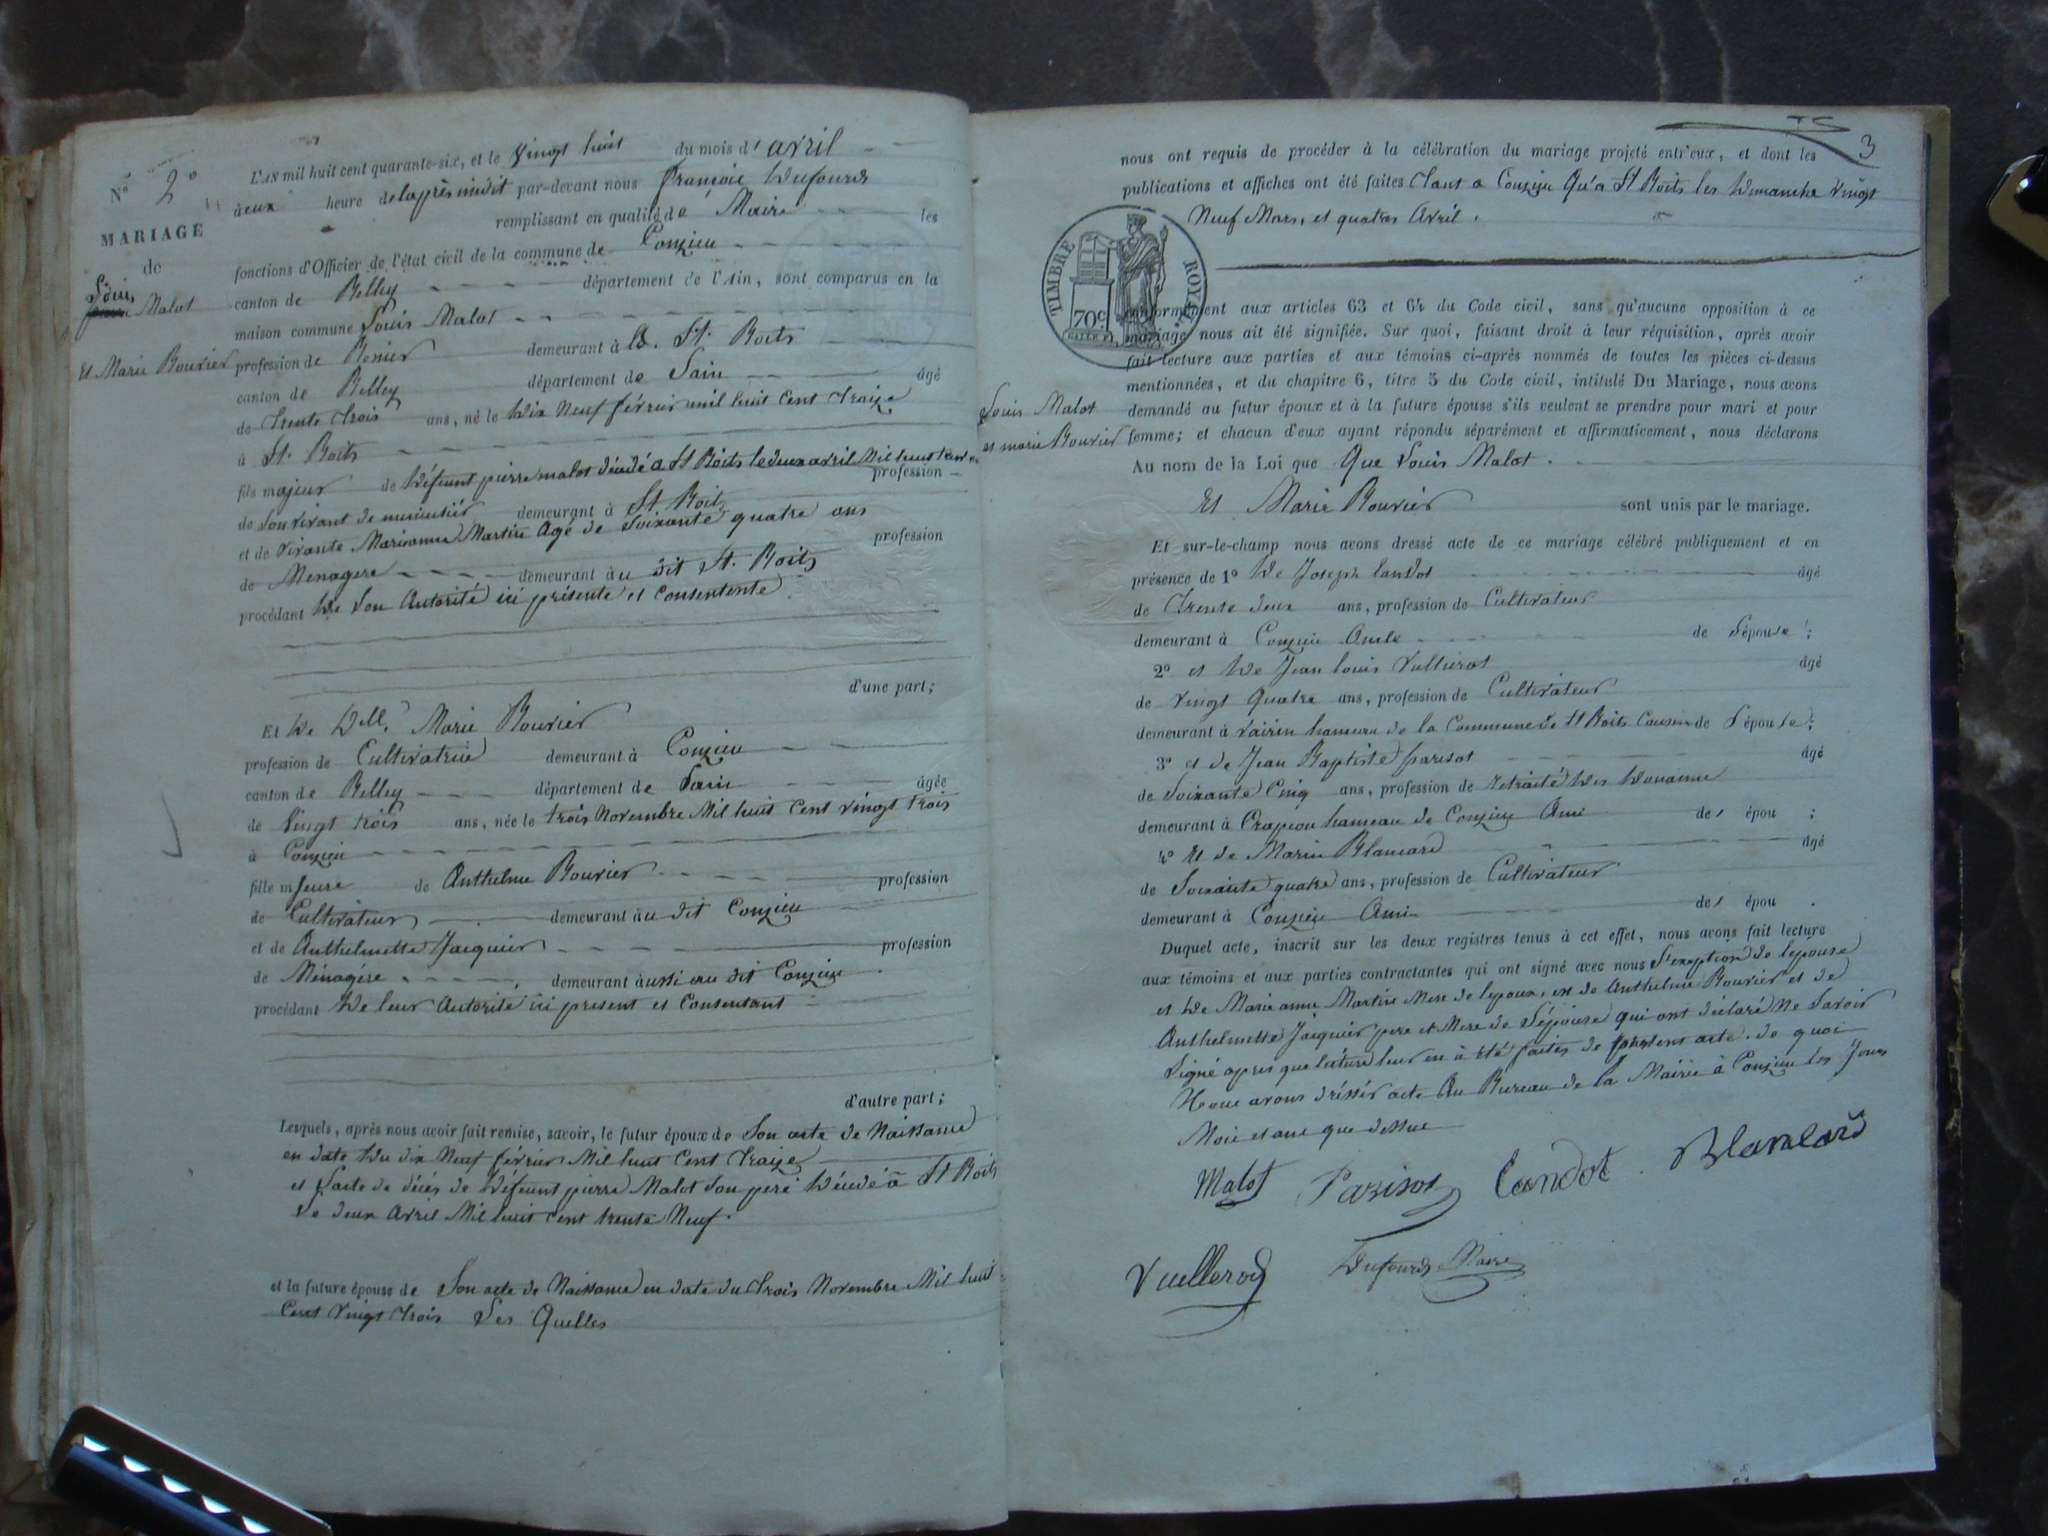 N° 2°
MARIAGE
de
Louis
Malot
Et Marie Bouvier
L'AN mil huit cent quarante-six, et le vingt huit du mois d' avril
à deux heure de laprès midit par-devant nous françois Dufourd
remplissant en qualité de Maire les
fonctions d'Officier de l'état civil de la commune de Conzieu
canton de Belley département de l'Ain, sont comparus en la
maison commune Louis Malot
profession de demeurant à St. Boits
canton de Belley département de Lain âgé
de trente trois ans, né le Dix Neuf février mil huit cent traize
à St. Boits
fils majeur de Défeunt pierre malot décédé a St Boits le deux avril Mil huit cent
profession
de Son vivant de demeurant à St. Boits
et de vivante Marianne Martin Agé de Soixante quatre ans
profession
de Menagere demeurant au dit St. Boits
procédant De Son Autorité ici présente et Consentente
d'une part;
Et De Dlle Marie Bouvier
profession de Cultivatrice demeurant à Conzieu
canton de Belley département de Lain âgée
de Vingt trois ans, née le trois Novembre Mil huit cent vingt trois
à Conzieu
fille majeure de Anthelme Bouvier profession
de Cultivateur demeurant au dit Conzieu
et de Anthelmette Jacquier profession
de Ménagère demeurant aussi au dit Conzieu
procédant De leur Autorité ici present et Consentant
d'autre part;
Lesquels, après nous avoir fait remise, savoir, le futur époux de Son acte de Naissance
en date Du dix Neuf février Mil huit Cent traize
et Lacte de décés de Défeunt pierre Malot Son peré Décédé à St Boits
Le deux Avril Mil huit cent trente Neuf.
et la future épouse de Son acte de Naissance en date du trois Novembre Mil huit
Cent Vingt trois Les Quelles
3
nous ont requis de procéder à la célébration du mariage projeté entr'eux, et dont les
publications et affiches ont été faites tant a Conzieu Qu'a St Boits les Dimanche vingt
Neuf Mars, et quatres Avril.
TIMBRE ROYAL
70c
conformément aux articles 63 et 64 du Code civil, sans qu'aucune opposition à ce
mariage nous ait été signifiée. Sur quoi, faisant droit à leur réquisition, après avoir
fait lecture aux parties et aux témoins ci-après nommés de toutes les pièces ci-dessus
mentionnées, et du chapitre 6, titre 5 du Code civil, intitulé Du Mariage, nous avons
Louis Malot
et marie Bouvier
demandé au futur époux et à la future épouse s'ils veulent se prendre pour mari et pour
femme; et chacun d'eux ayant répondu séparément et affirmativement, nous déclarons
Au nom de la Loi que Que Louis Malot.
Et Marie Bouvier sont unis par le mariage.
Et sur-le-champ nous avons dressé acte de ce mariage célébré publiquement et en
présence de 1° De Joseph Candot âgé
de trente deux ans, profession de Cultivateur
demeurant à Conzieu Oncle de Lépouse;
2° et De Jean Louis Vullierot âgé
de vingt Quatre ans, profession de Cultivateur
demeurant à Vairin hameau de la Commune de St Boits Cousin de Lépouse;
3° et de Jean Baptiste Parisot âgé
de Soixante Cinq ans, profession de retraité Des Douanne
demeurant à Crapeou hameau de Conzieu Ami de l épou ;
4° Et de Marin Blancard âgé
de Soixante quatre ans, profession de Cultivateur
demeurant à Conzieu Ami de l épou .
Duquel acte, inscrit sur les deux registres tenus à cet effet, nous avons fait lecture
aux témoins et aux parties contractantes qui ont signé avec nous L'exception de lépouse
et De Marie anne Martin Mere de lepoux, et de Anthelme Bouvier et de
Anthelmette Jacquier pere et Mere de Lépouse qui ont déclaré Ne Savoir
Signé apres que lecture leur en à été faites de present acte. de quoi
Nous avons dréssér acte Au Bureau de la Mairie à Conzieu Les Jour
Mois et ane que dessue
Malot Parisot Candot Blancard
Vuillerod Dufourd Maire